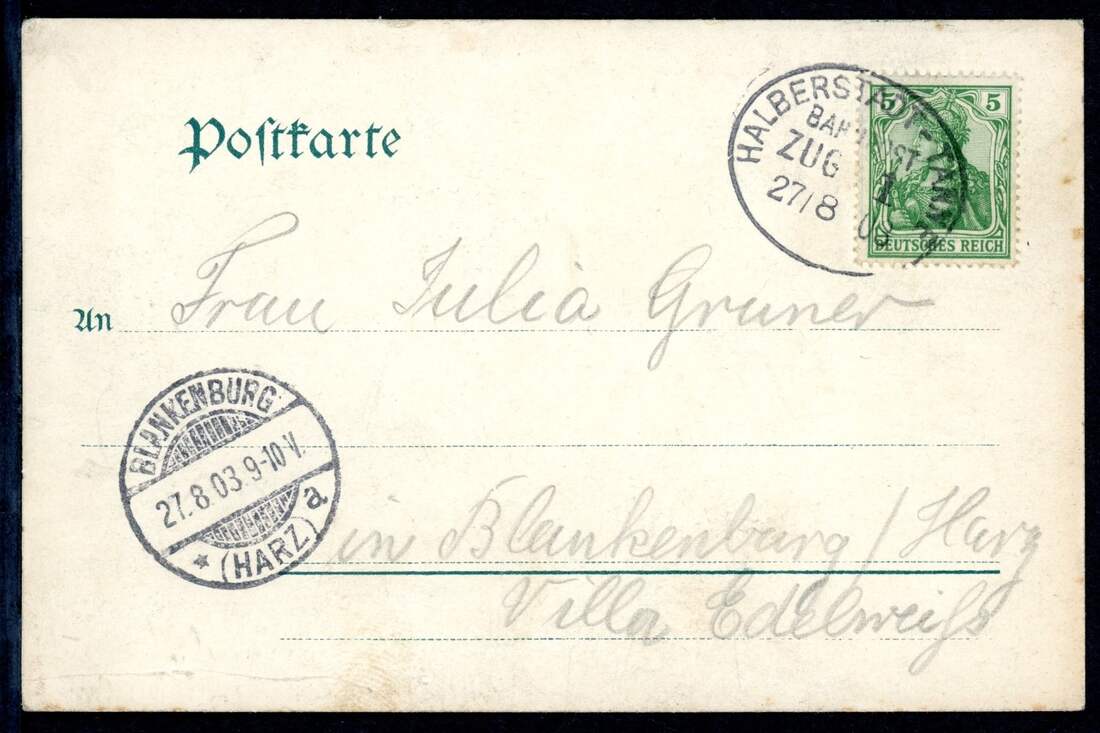 Postkarte
HALBERSTADT-TANNE
BAHNPOST
ZUG 1
27/8 03
5 5
DEUTSCHES REICH
An Frau Julia Gruner
BLANKENBURG
27.8.03.9-10V.
* (HARZ) a
in Blankenburg / Harz
Villa Edelweiß